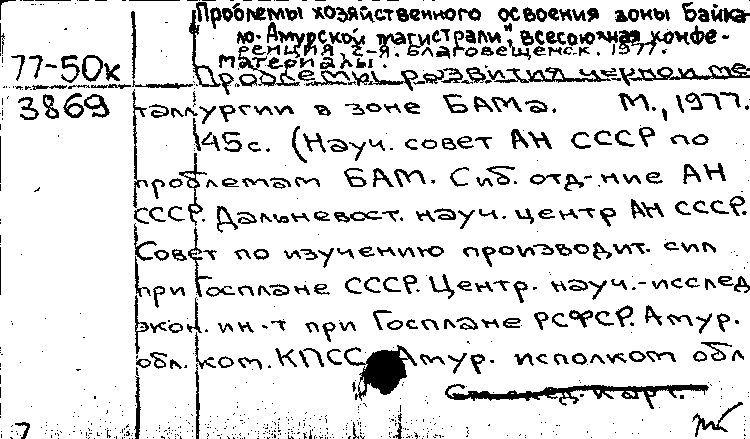 "Проблемы хозяйственного освоения зоны Байка-
ло-Амурской магистрали", всесоюзная конфе-
ренция. 2-я. Благовещенск. 1977.
Материалы.
77-50к
Проблемы развития черной ме-
3869
таллургии в зоне БАМа. М., 1977.
145с. (Науч. совет АН СССР по
проблемам БАМ. Сиб. отд-ние АН
СССР. Дальневост. науч. центр АН СССР.
Совет по изучению производит. сил
при Госплане СССР. Центр. науч.-исслед
экон. ин-т при Госплане РСФСР. Амур.
обл. ком. КПСС. Амур. исполком обл
См. след. карт.